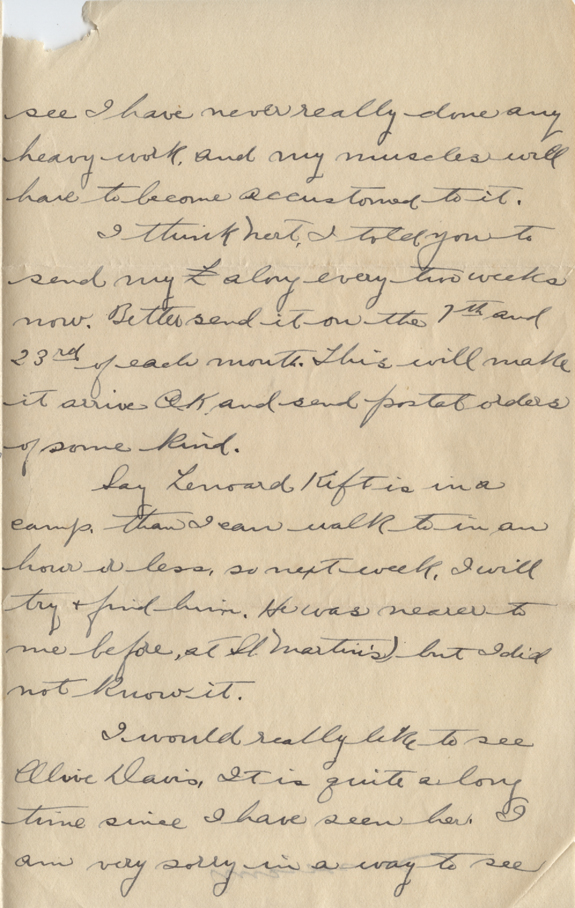 see I have never really done any
heavy work, and my muscles will
have to become accustomed to it.
I think next, I told you to
send my £ along every two weeks
now. Better send it on the 7th and
23rd of each month. This will make
it arrive O.K. and send postal orders
of some kind.
Say Lenoard Kift is in a
camp. than I can walk to in an
hour or less, so next week, I will
try + find him. He was nearer to
me before, at St Martin's) but I did
not know it.
I would really like to see
Olive Davis, It is quite a long
time since I have seen her. I
am very sorry in a way to see